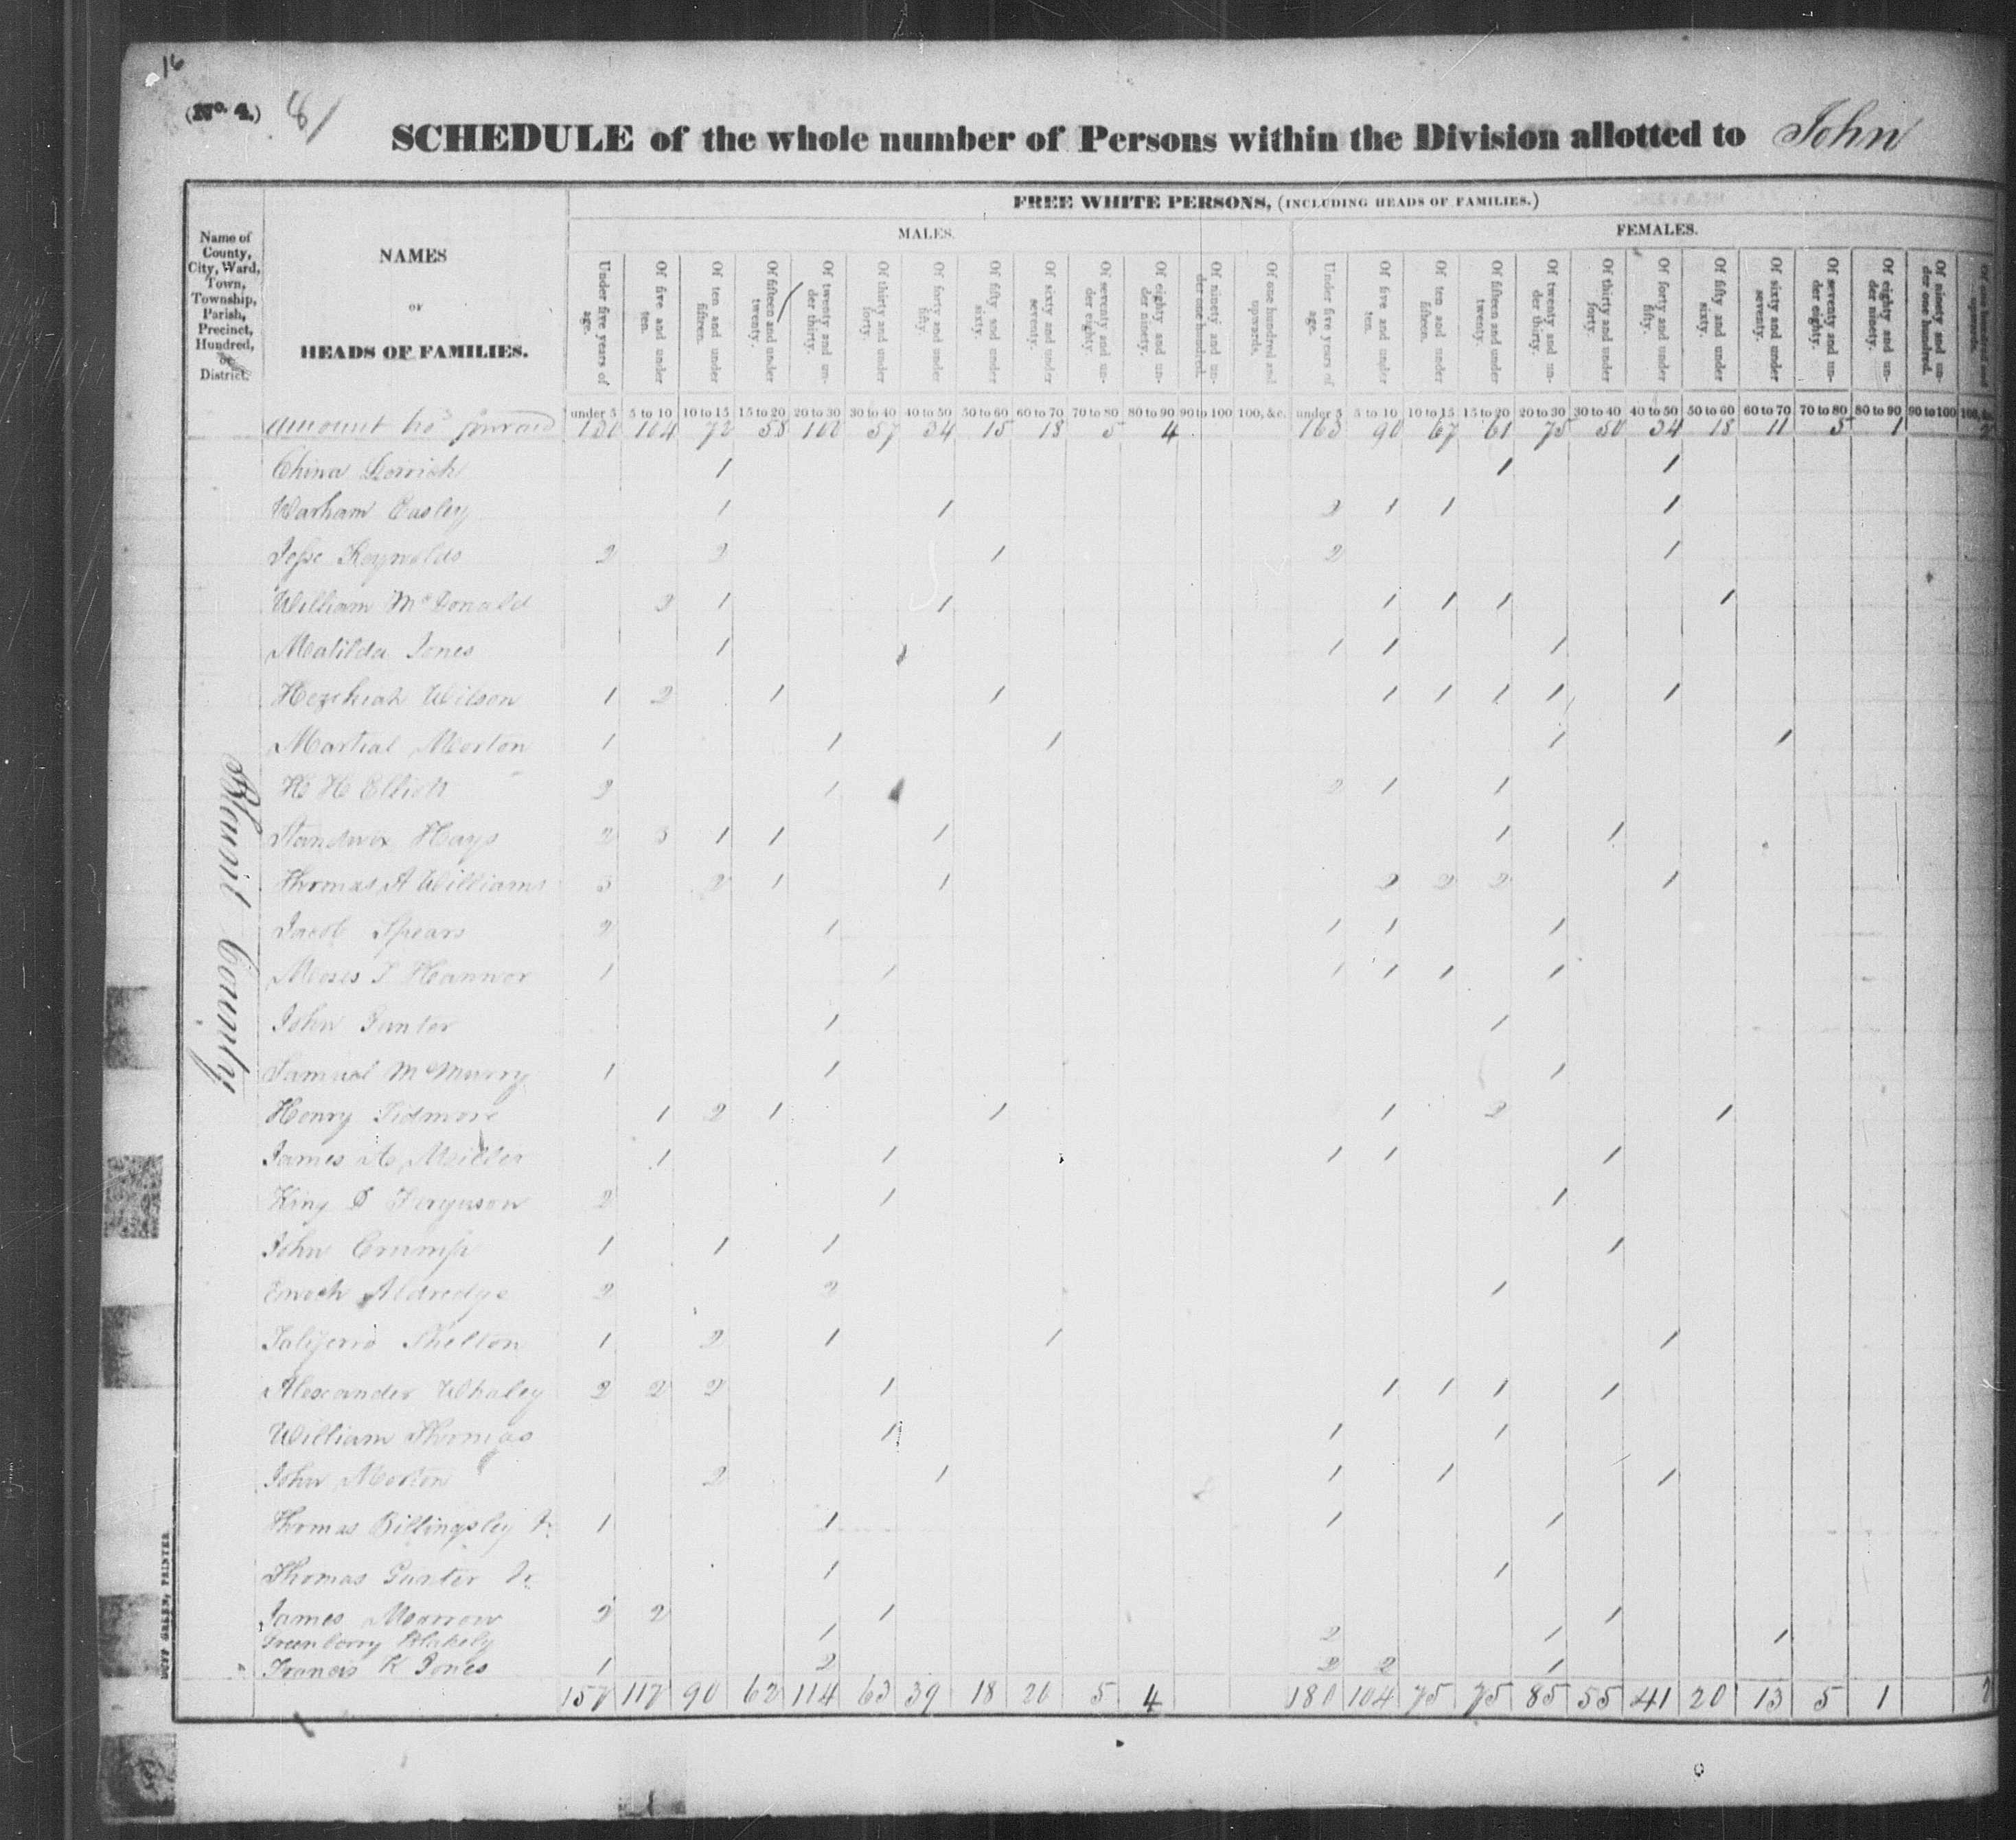 16
(No. 4.) 81
SCHEDULE of the whole number of Persons within the Division allotted to John
Name of County, City, Ward, Town, Township, Parish, Precinct, Hundred, or District.
NAMES
OF
HEADS OF FAMILIES.
FREE WHITE PERSONS, (INCLUDING HEADS OF FAMILIES.)
MALES.
FEMALES.
Under five years of age. Of five and under ten. Of ten and under fifteen. Of fifteen and under twenty. Of twenty and under thirty. Of thirty and under forty. Of forty and under fifty. Of fifty and under sixty. Of sixty and under seventy. Of seventy and under eighty. Of eighty and under ninety. Of ninety and under one hundred. Of one hundred and upwards. Under five years of age. Of five and under ten. Of ten and under fifteen. Of fifteen and under twenty. Of twenty and under thirty. Of thirty and under forty. Of forty and under fifty. Of fifty and under sixty. Of sixty and under seventy. Of seventy and under eighty. Of eighty and under ninety. Of ninety and under one hundred. Of one hundred and upwards.
under 5 5 to 10 10 to 15 15 to 20 20 to 30 30 to 40 40 to 50 50 to 60 60 to 70 70 to 80 80 to 90 90 to 100 100, &c. under 5 5 to 10 10 to 15 15 to 20 20 to 30 30 to 40 40 to 50 50 to 60 60 to 70 70 to 80 80 to 90 90 to 100 100, &c.
Amount bro forward 130 104 72 55 100 57 34 15 18 5 4 163 90 67 61 75 50 34 18 11 5 1 2
Blount County
China 1 1 1
Warham Easley 1 1 2 1 1 1
Jesse Reynolds 2 2 1 2 1
William McDonald 2 1 1 1 1 1 1
Matilda Jones 1 1 1 1
Hezekiah Wilson 1 2 1 1 1 1 1 1 1
Martial Morton 1 1 1 1 1
H H Elliott 2 1 2 1 1
Standwix Hays 2 3 1 1 1 1 1
Thomas A Williams 3 2 1 1 2 2 2 1
Jacob Spears 2 1 1 1 1
Moses T Hannor 1 1 1 1 1 1
John Gunter 1 1
Samuel McMurry 1 1 1
Henry Tidmore 1 2 1 1 1 2 1
James A Miller 1 1 1 1 1
King D Ferguson 2 1 1
John Crump 1 1 1 1
Enoch Aldredge 2 2 1
Taliferro Shelton 1 2 1 1 1
Alexander Whaley 2 2 2 1 1 1 1 1
William Thomas 1 1 1
John Morton 2 1 1 1 1
Thomas Billingsley Jr 1 1 1 1
Thomas Gunter Jr 1 1
James Morrow 2 2 1 1
Greenberry Blakely 1 2 1 1
Francis K Jones 1 2 2 2 1
157 117 90 62 114 63 39 18 20 5 4 180 104 75 75 85 55 41 20 13 5 1 2
DUFF GREEN, PRINTER